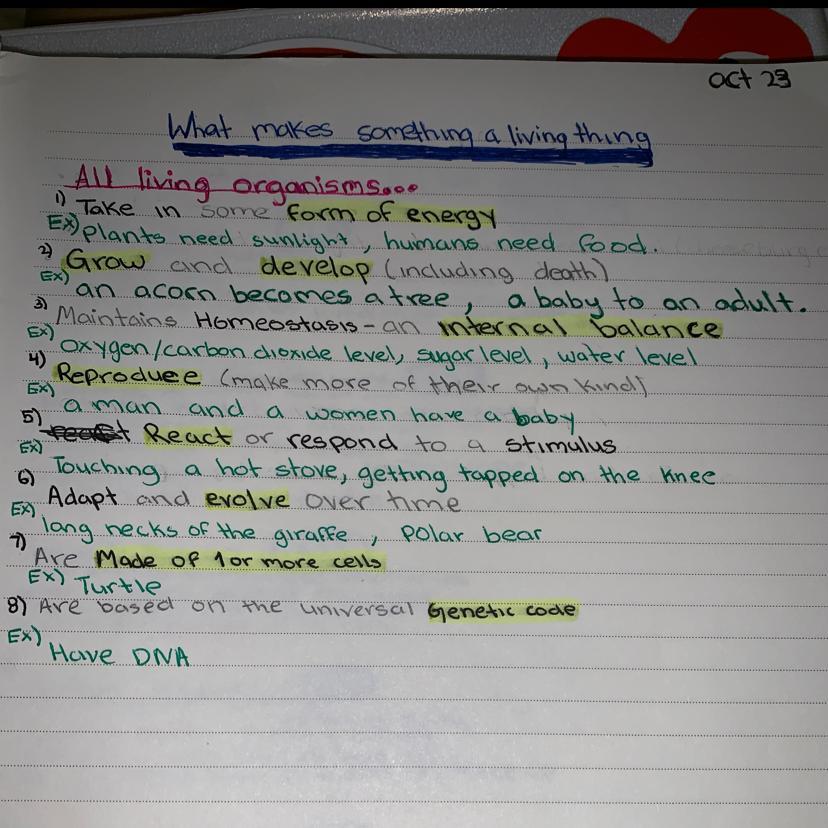 Oct 23
What makes something a living thing
All living organisms...
1) Take in some form of energy
Ex) Plants need sunlight, humans need food.
2) Grow and develop (including death)
Ex) an acorn becomes a tree, a baby to an adult.
3) Maintains Homeostasis - an internal balance
Ex) Oxygen/carbon dioxide level, sugar level, water level
4) Reproduce (make more of their own kind)
Ex) a man and a women have a baby
5) React or respond to a stimulus
Ex) Touching a hot stove, getting tapped on the knee
6) Adapt and evolve over time
Ex) long necks of the giraffe, Polar bear
7) Are Made of 1 or more cells
Ex) Turtle
8) Are based on the universal Genetic code
Ex) Have DNA